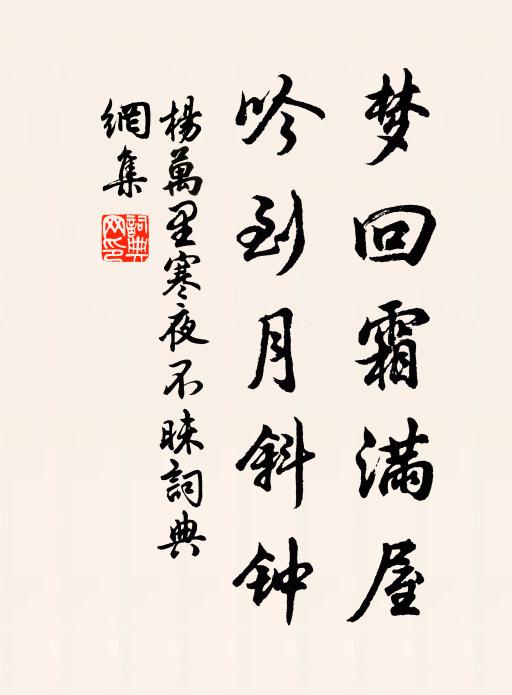 梦回霜满屋
吟到月斜钟
楊萬里寒夜不昧詞典
網集
詞典
网印